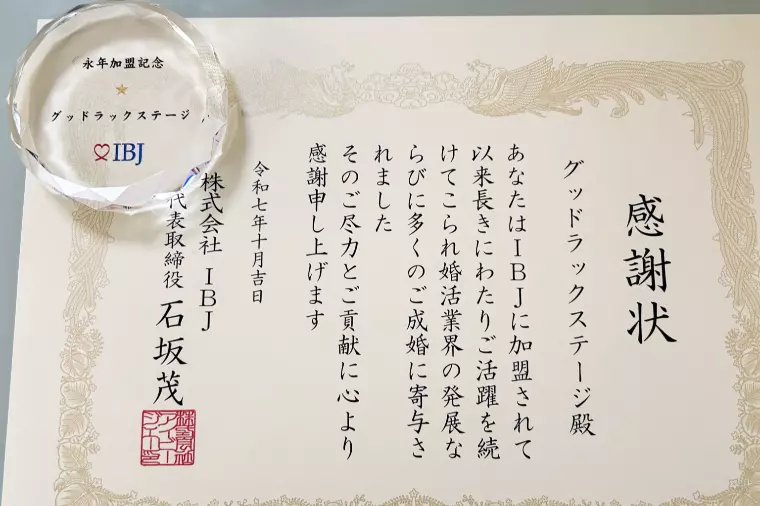 永年加盟記念
グッドラックステージ
IBJ
感謝状
グッドラックステージ殿
あなたはIBJに加盟されて
以来長きにわたりご活躍を続
けてこられ婚活業界の発展な
らびに多くのご成婚に寄与さ
れました
そのご尽力とご貢献に心より
感謝申し上げます
令和七年十月吉日
株式会社 IBJ
代表取締役 石坂茂